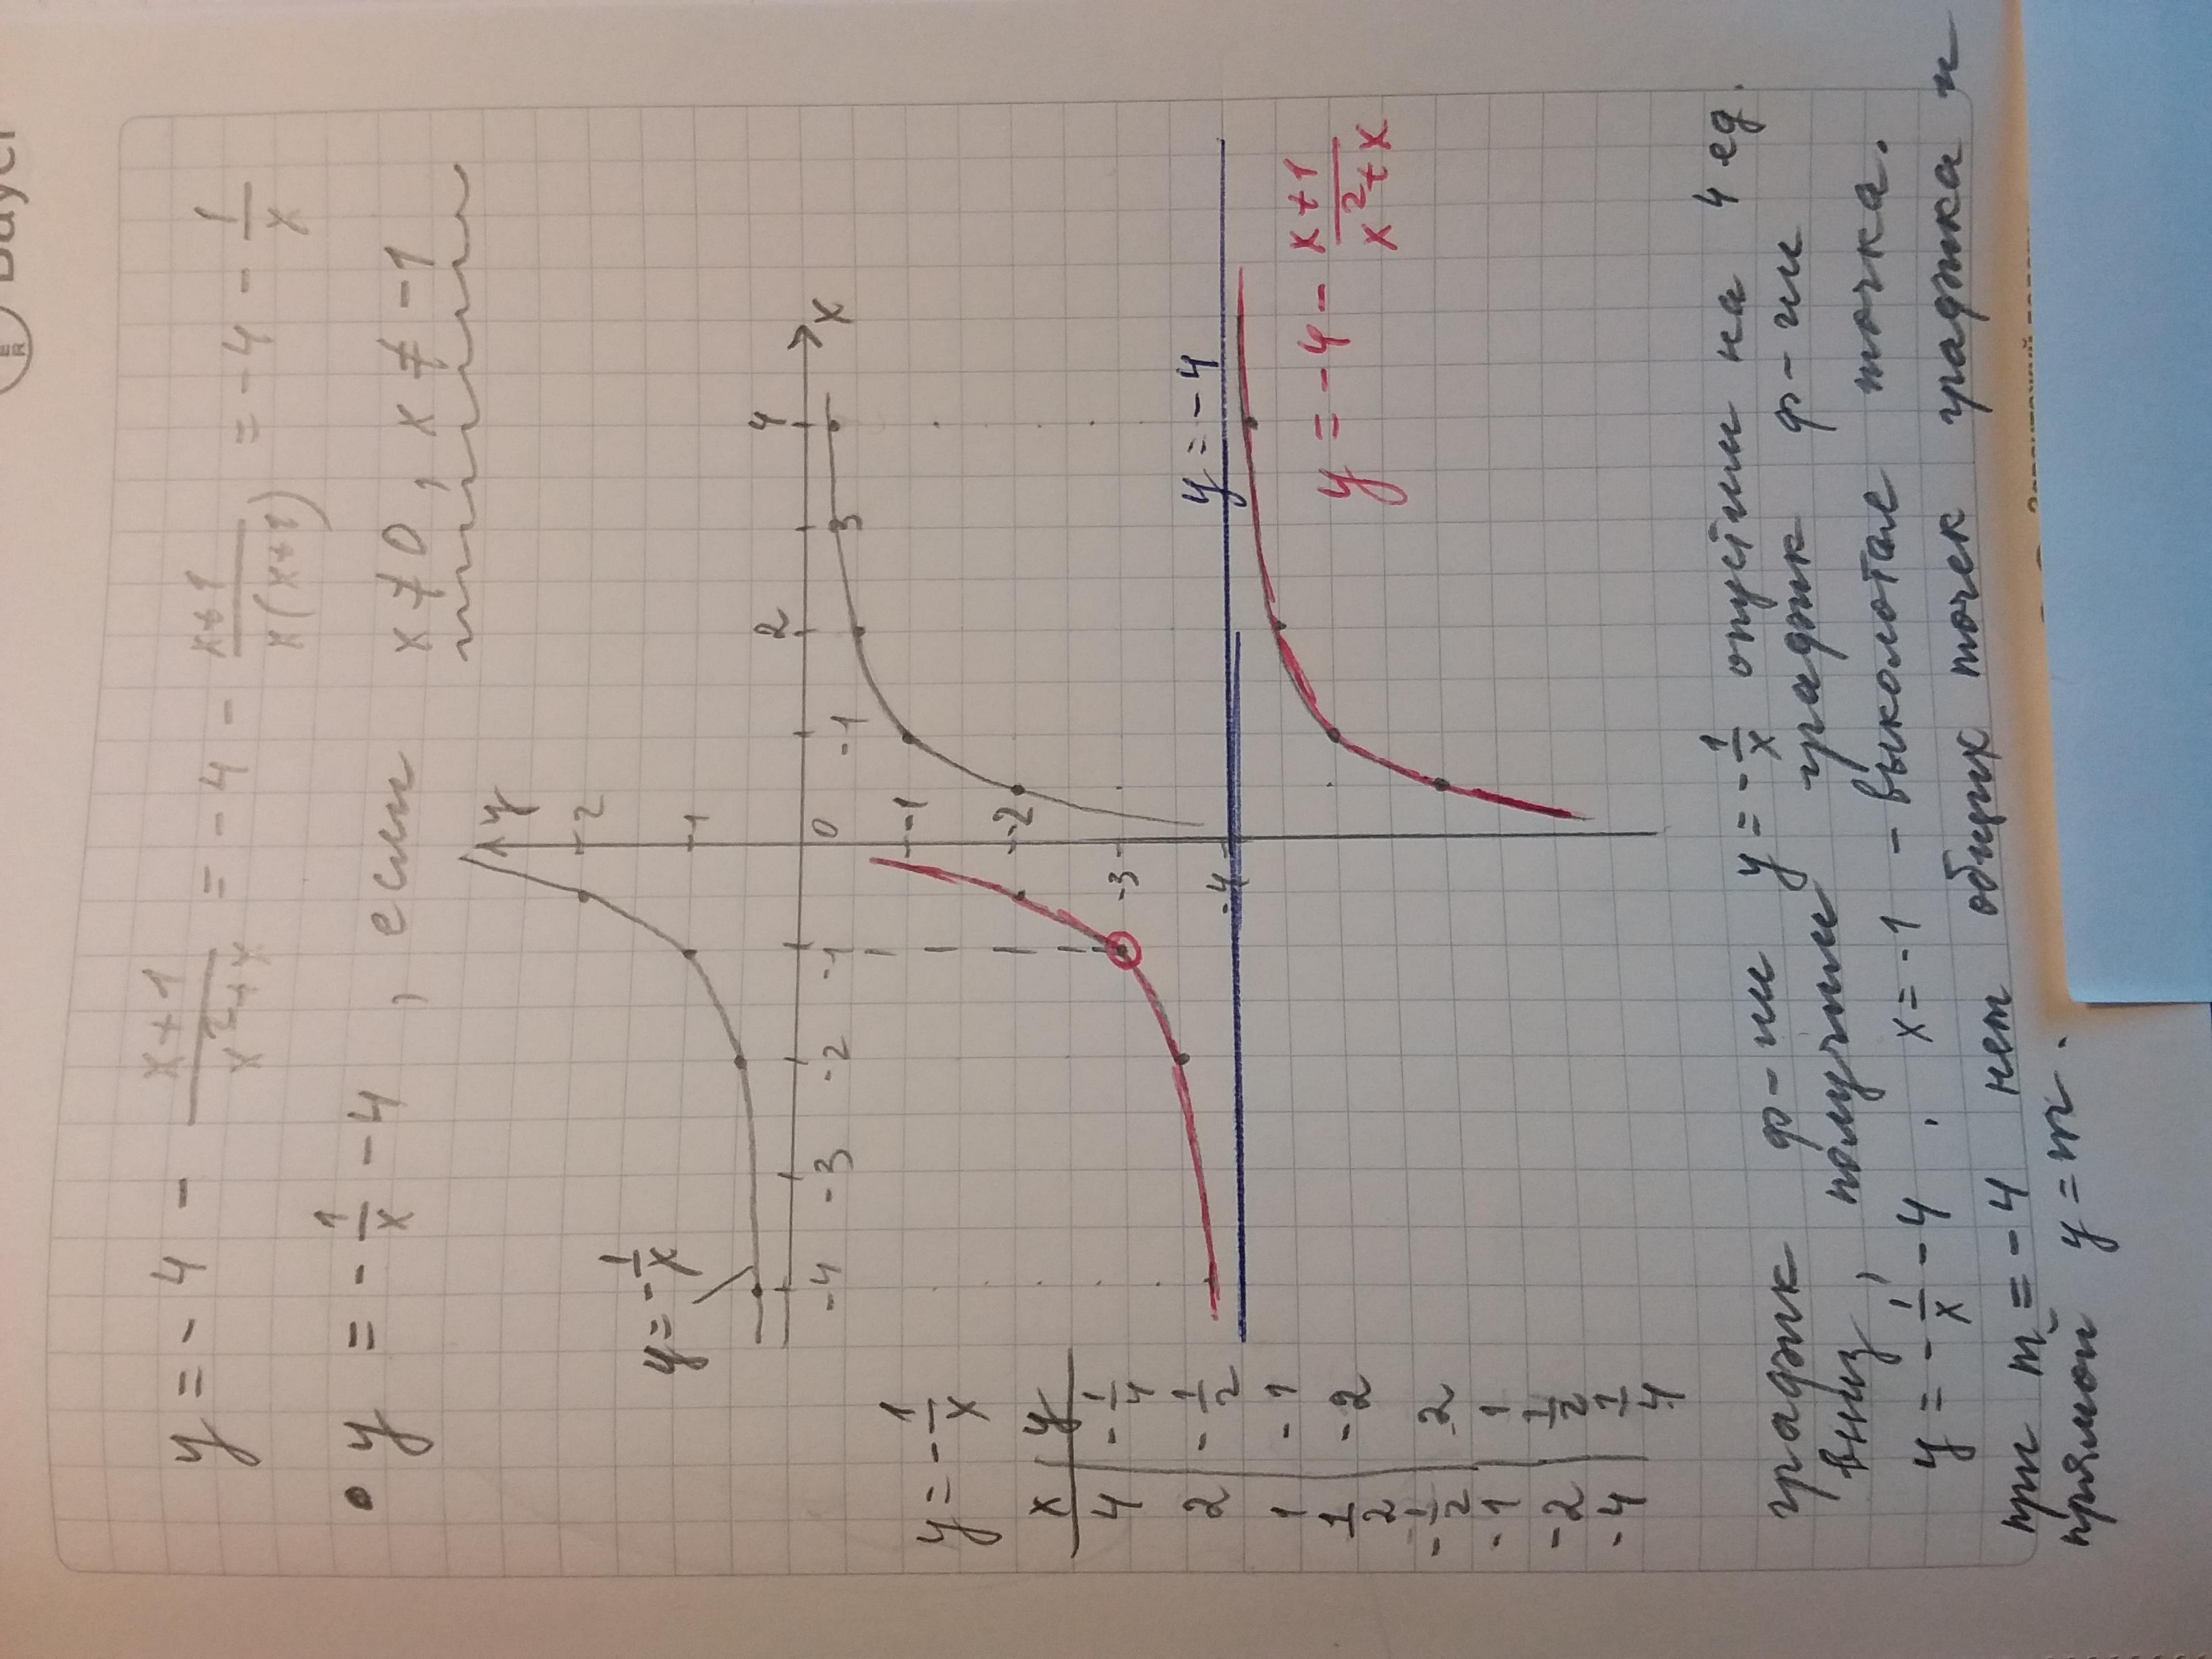 y = -4 - \frac{x+1}{x^2+x} = -4 - \frac{x+1}{x(x+1)} = -4 - \frac{1}{x}
• y = -\frac{1}{x} - 4 , если x ≠ 0, x ≠ -1
y
2
1
y = -\frac{1}{x}
-4 -3 -2 -1 0 -1 2 3 4 x
-1
-2
-3
-4
y = -4
y = -4 - \frac{x+1}{x^2+x}
y = -\frac{1}{x}
x y
4 -\frac{1}{4}
2 -\frac{1}{2}
1 -1
\frac{1}{2} -2
-\frac{1}{2} 2
-1 1
-2 \frac{1}{2}
-4 \frac{1}{4}
график ф-ии y = -\frac{1}{x} опустим на 4 ед.
вниз, получим график ф-ии
y = -\frac{1}{x} - 4 . x = -1 - выколотая точка.
при m = -4 нет общих точек графика и
прямой y = m.